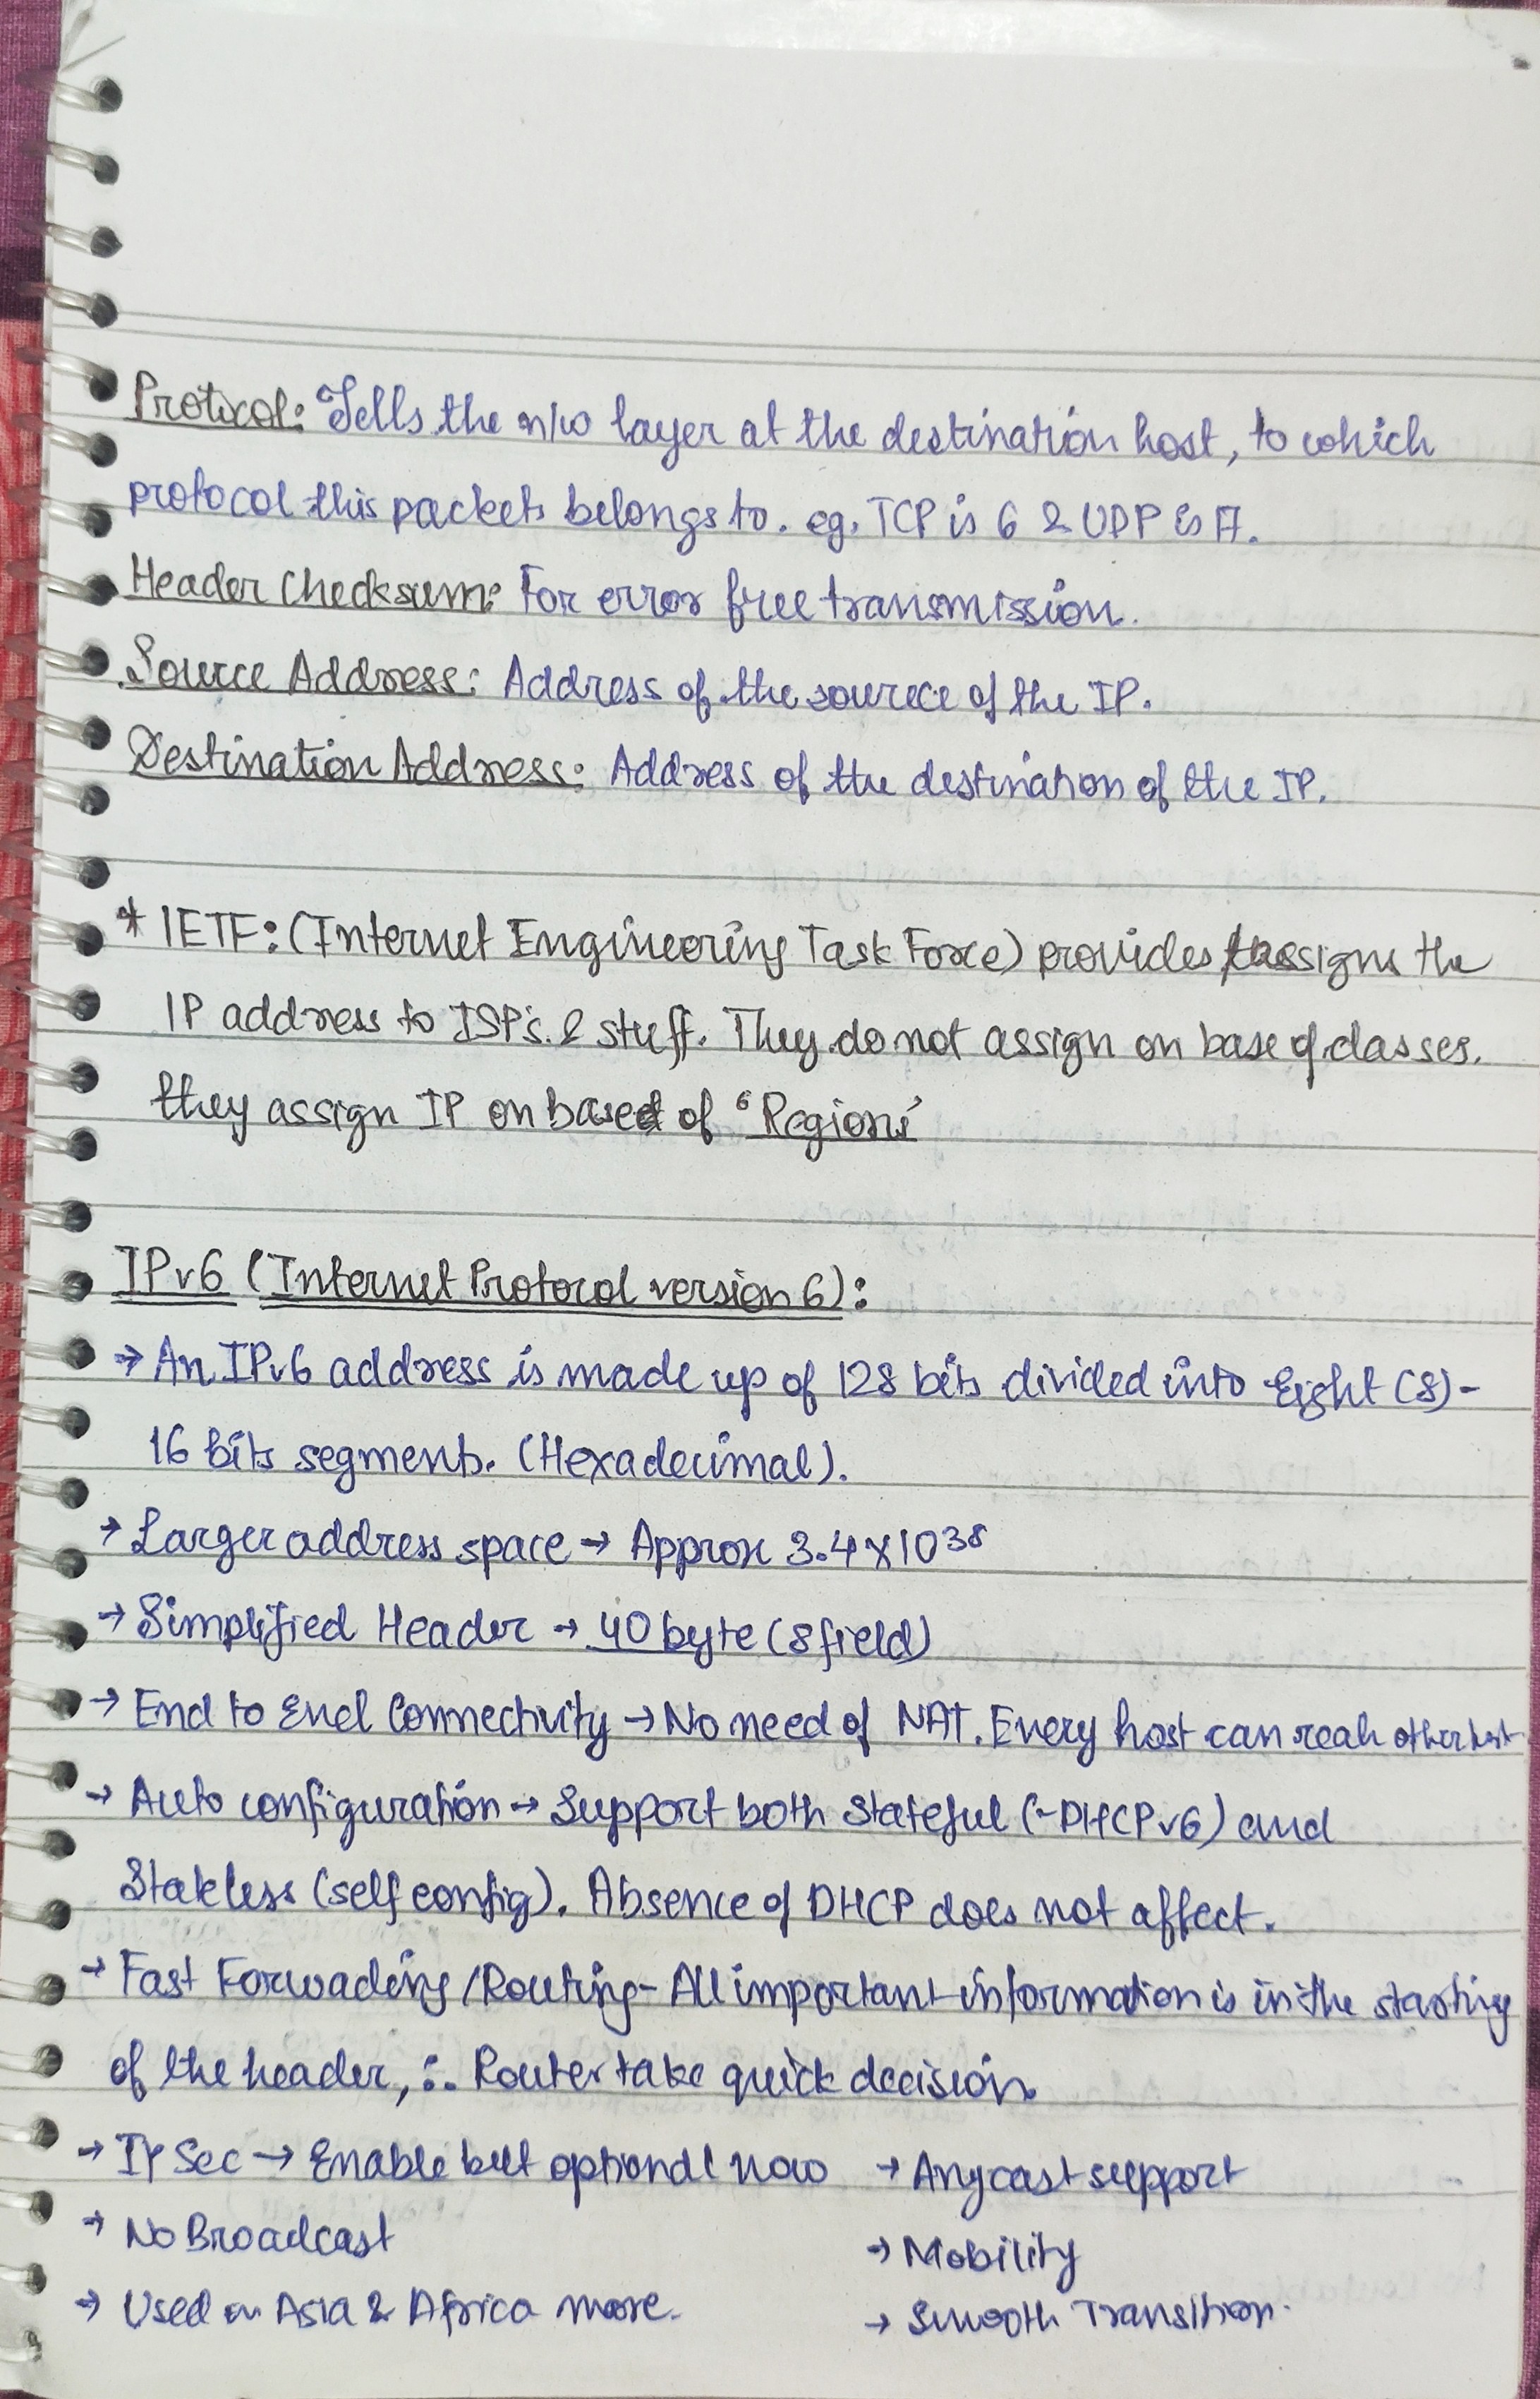 Protocol: Tells the n/w layer at the destination host, to which
protocol this packets belongs to. eg. TCP is 6 & UDP is 17.
Header Checksum: For error free transmission.
Source Address: Address of the sourece of the IP.
Destination Address: Address of the destination of the IP.
* IETF: (Internet Engineering Task Force) provides / assigns the
IP address to ISP's. & stuff. They do not assign on base of classes.
they assign IP on based of 'Regions'
IPv6 (Internet Protocol version 6):
→ An IPv6 address is made up of 128 bits divided into Eight (8)-
16 bits segments. (Hexadecimal).
→ Larger address space → Approx 3.4×10³⁸
→ Simplified Header → 40 byte (8 field)
→ End to End Connectivity → No need of NAT. Every host can reah other host
→ Auto configuration → Support both Stateful (-DHCPv6) and
Stateless (self config). Absence of DHCP does not affect.
→ Fast Forwading/Routing- All important information is in the starting
of the header, ∴ Router take quick decision.
→ IPSec → Enable but optional now → Anycast support
→ No Broadcast
→ Mobility
→ Used in Asia & Africa more.
→ Smooth Transition.